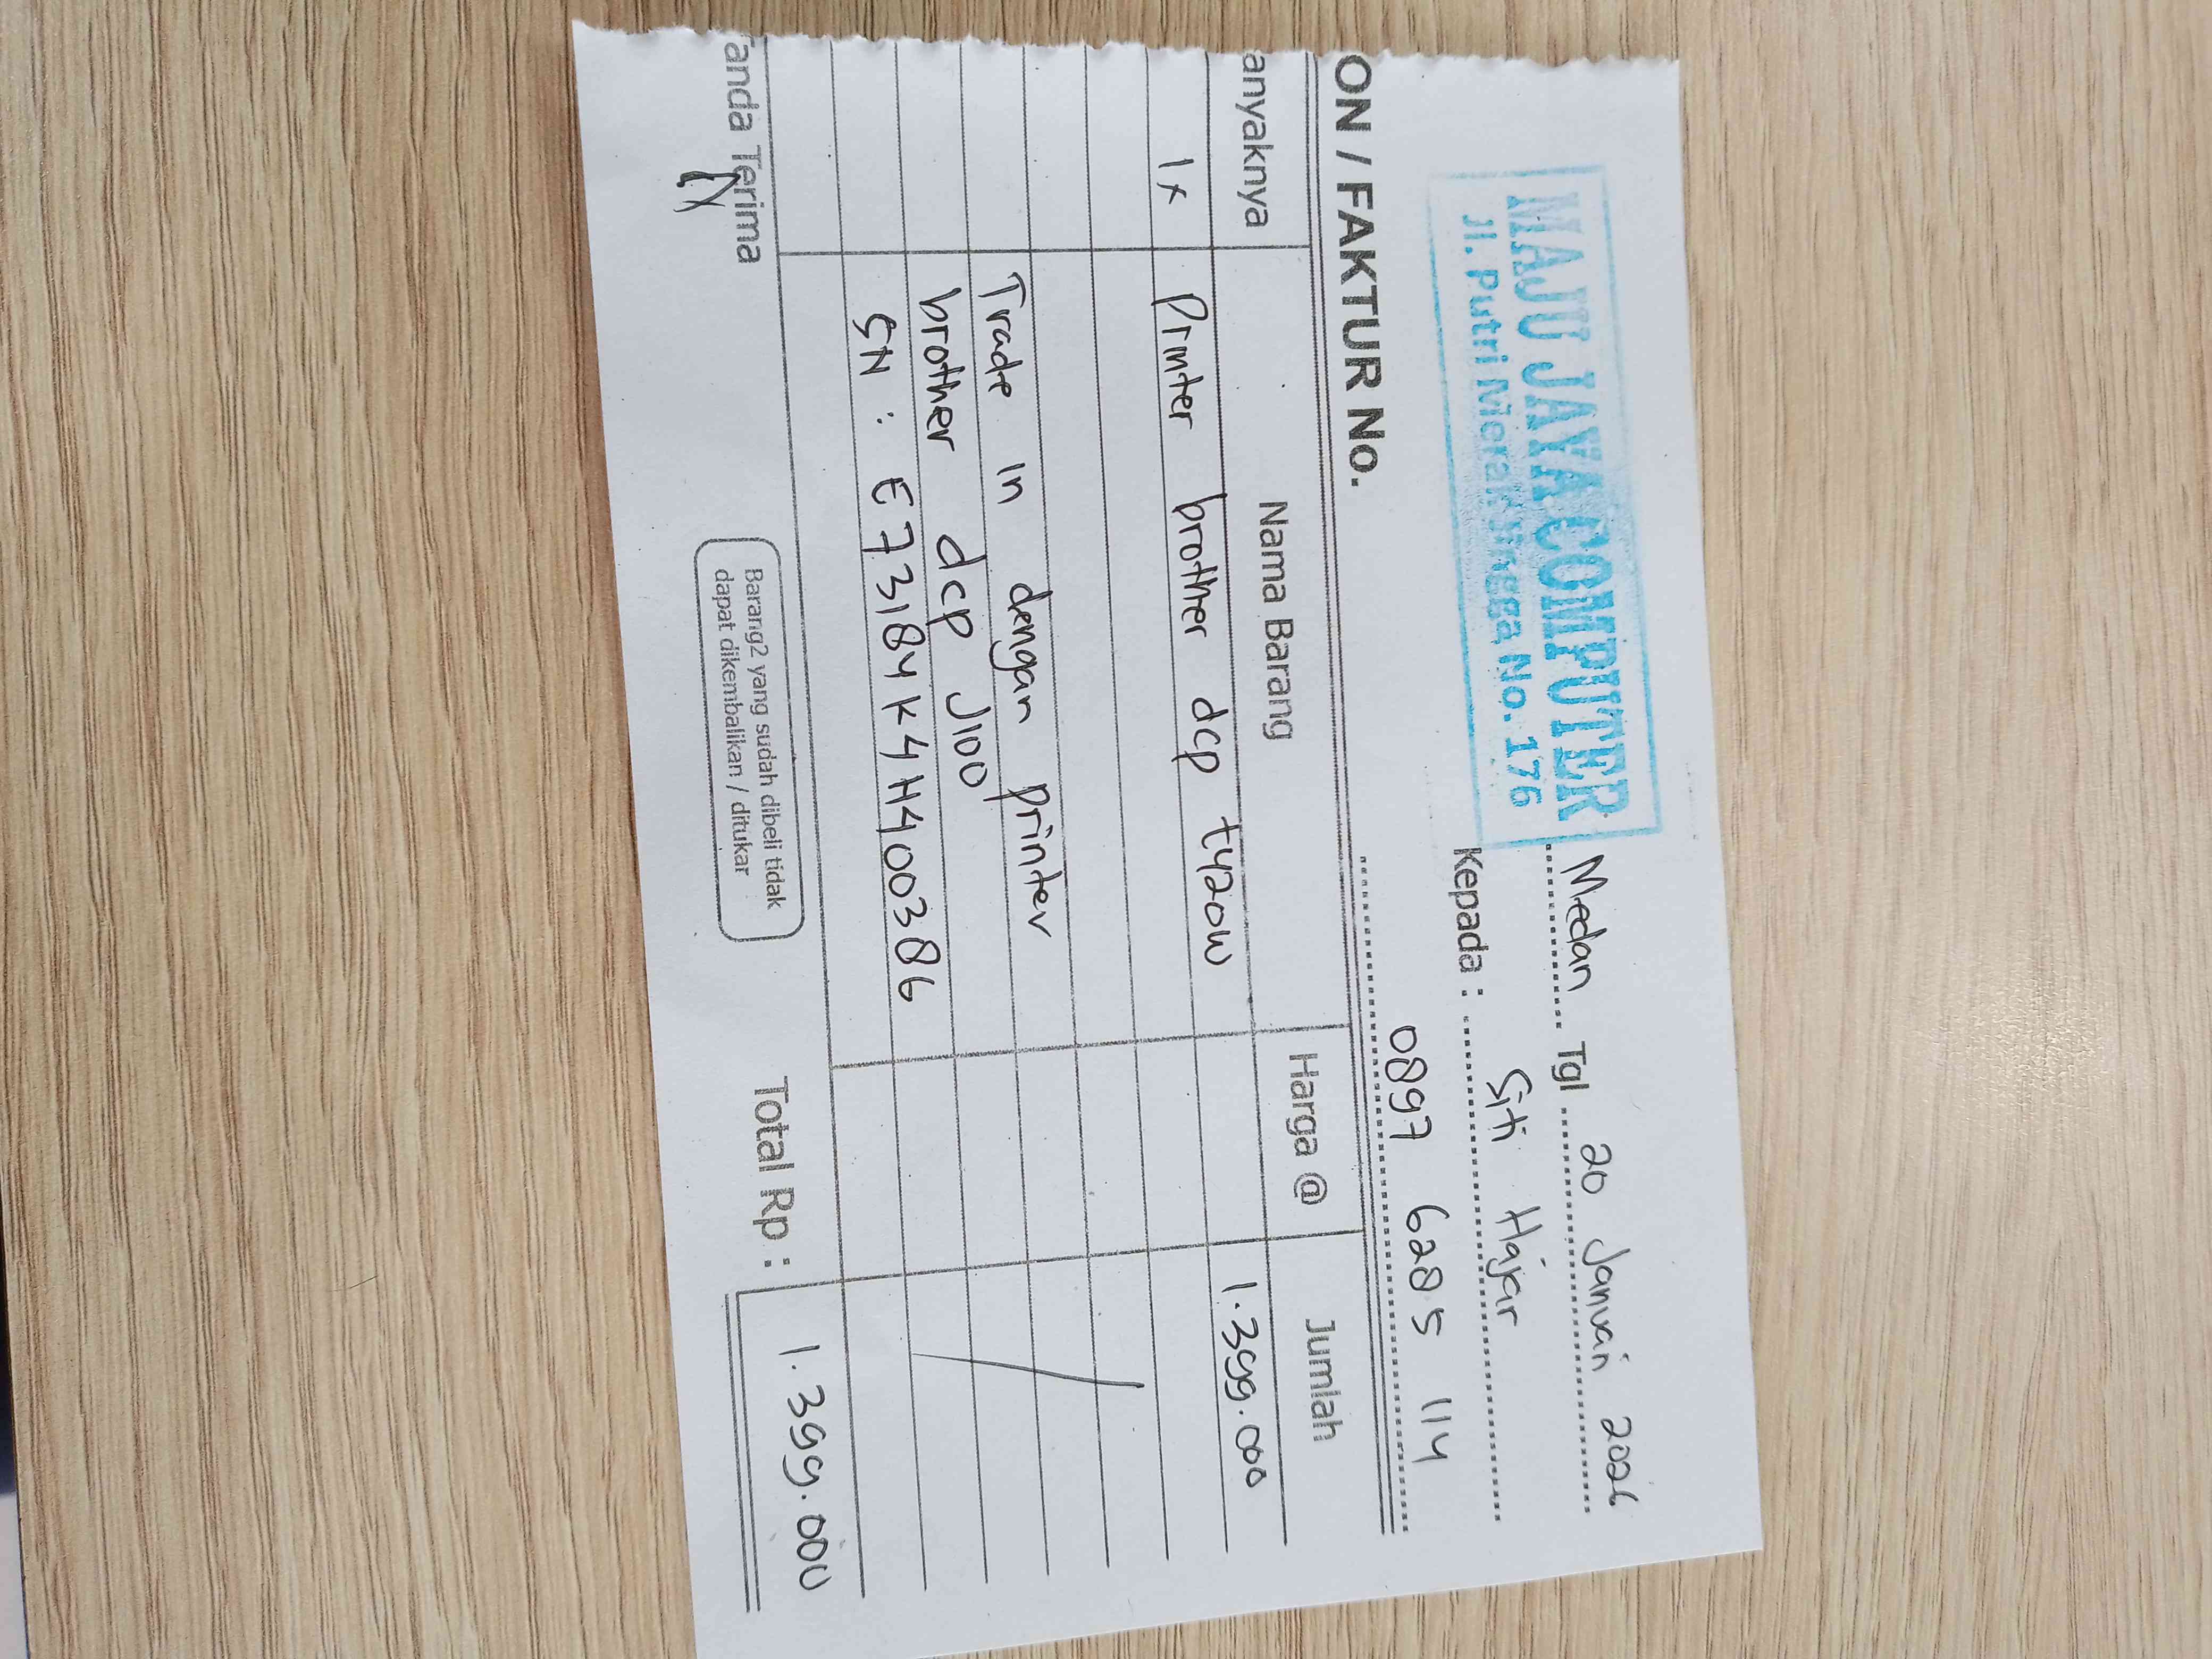 MAJU JAYA COMPUTER
Jl. Putri Merak Jingga No. 176
Medan Tgl 20 Januari 2026
Kepada : Siti Hajar
0897 6285 114
ON / FAKTUR No.
anyaknya Nama Barang Harga @ Jumlah
1x Printer brother dcp t420w 1.399.000
Trade in dengan printer
brother dcp J100
SN : E73184K4H400386
Tanda Terima
Barang2 yang sudah dibeli tidak
dapat dikembalikan / ditukar
Total Rp : 1.399.000